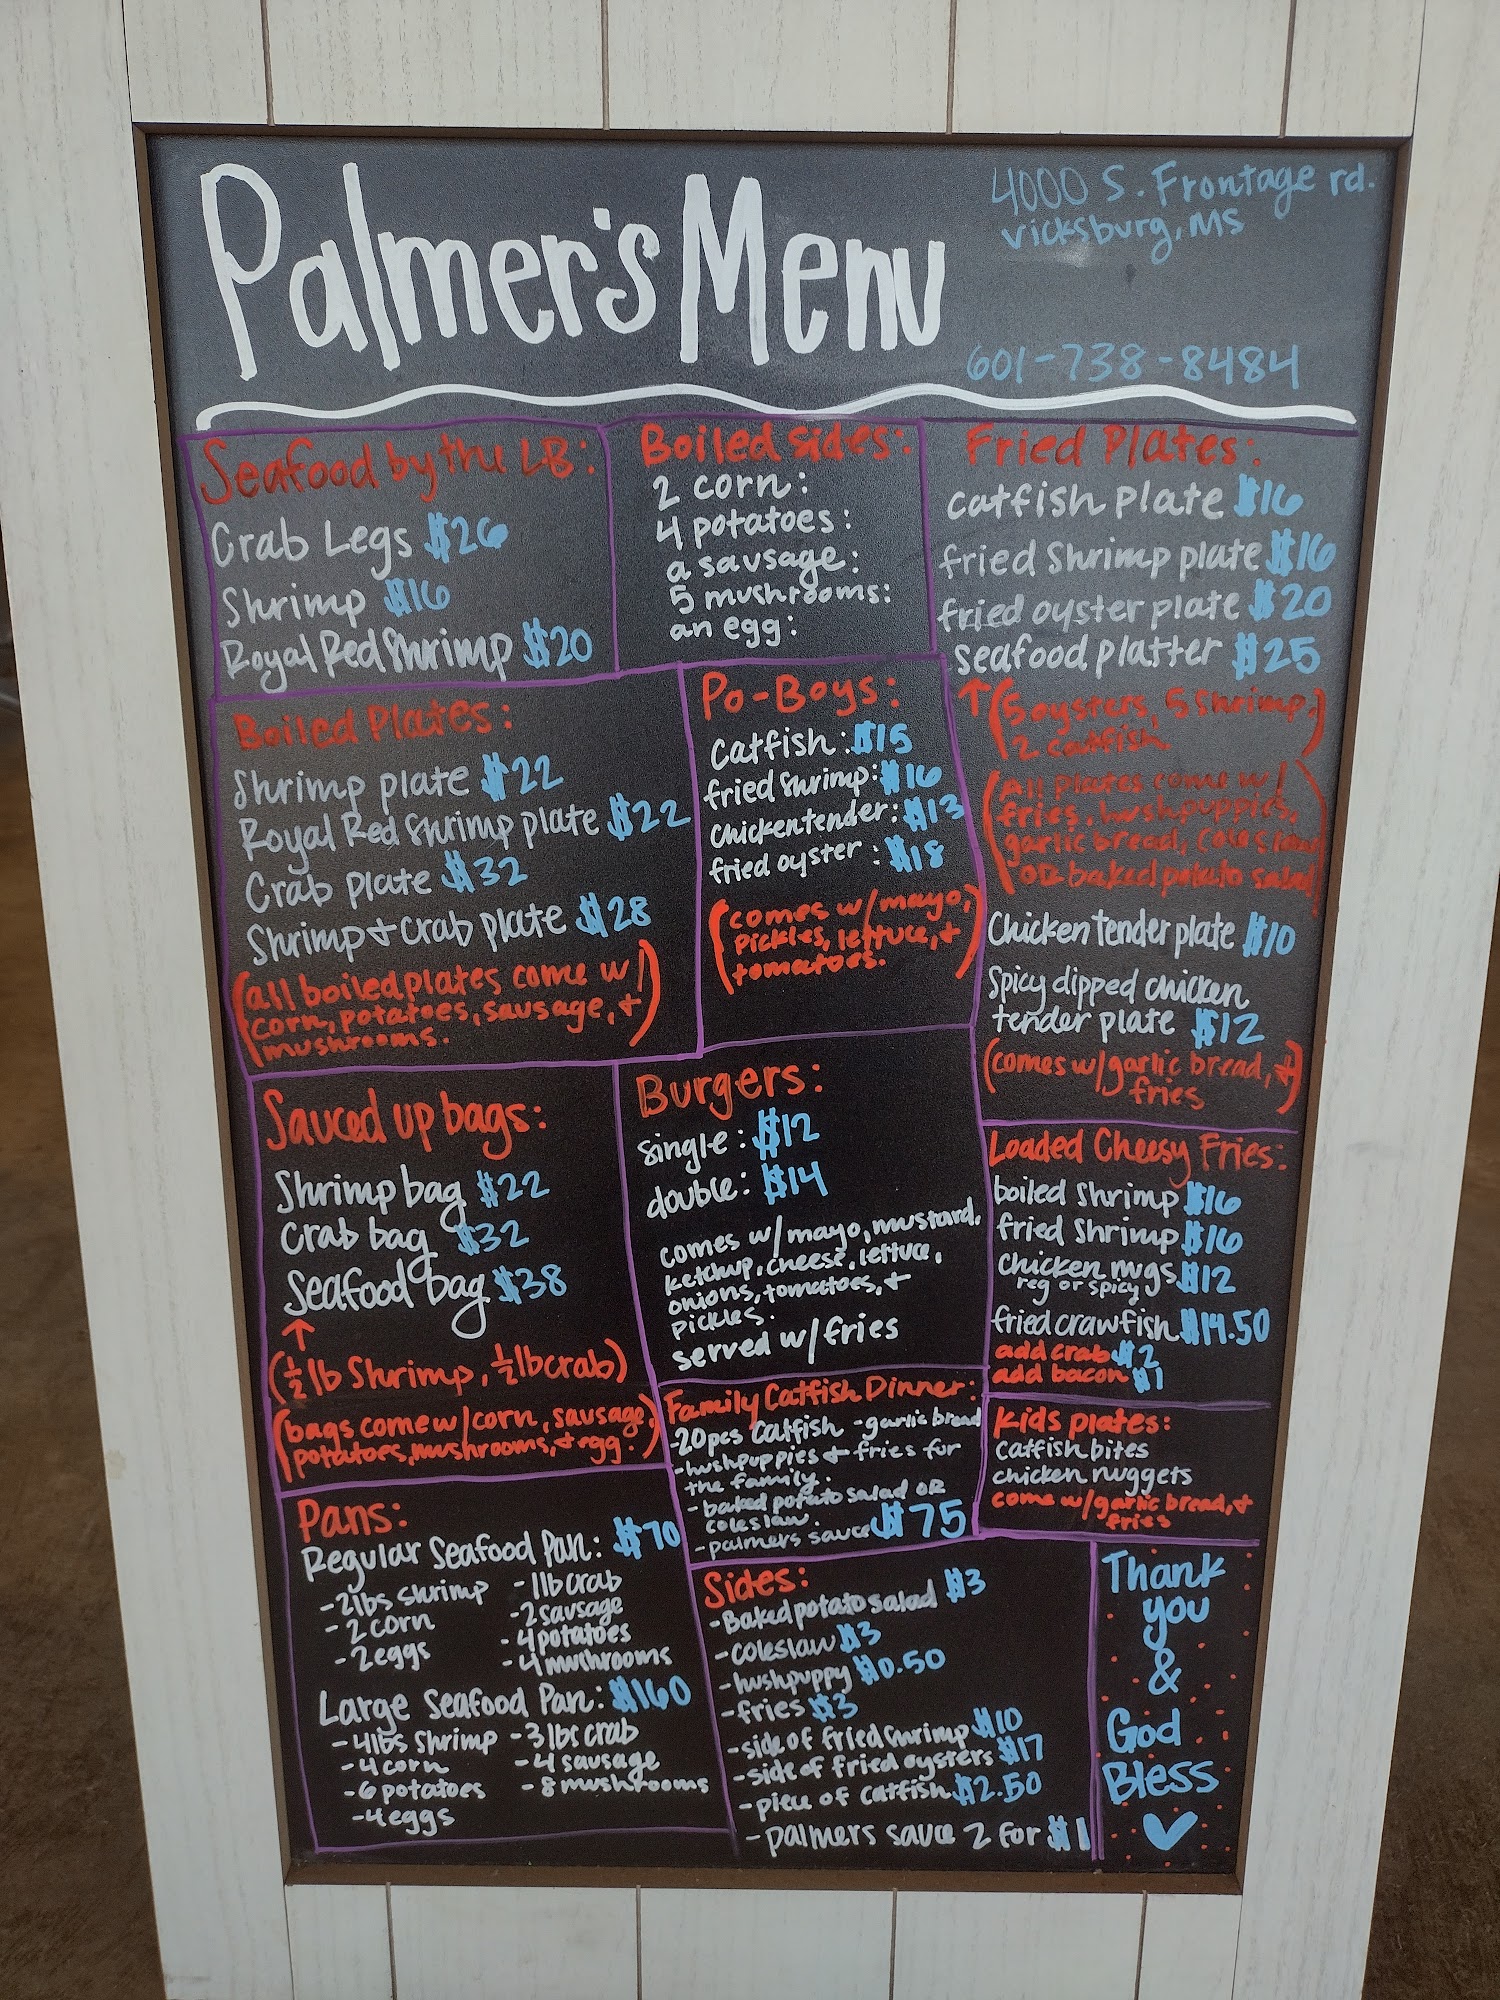 Palmer's Menu
4000 S. Frontage rd.
Vicksburg, MS
601-738-8484
Seafood by the LB:
Crab Legs $26
Shrimp $16
Royal Red Shrimp $20
Boiled sides:
2 corn:
4 potatoes:
a sausage:
5 mushrooms:
an egg:
Fried Plates:
catfish plate $16
fried Shrimp plate $16
fried oyster plate $20
seafood platter $25
↑(5 oysters, 5 Shrimp,
2 catfish)
(All plates come w/
fries, hushpuppies,
garlic bread, coleslaw
OR baked potato salad)
Chicken tender plate $10
Spicy dipped chicken
tender plate $12
(comes w/garlic bread, +
fries)
Boiled Plates:
Shrimp plate $22
Royal Red Shrimp plate $22
Crab plate $32
Shrimp + Crab plate $28
(all boiled plates come w/
corn, potatoes, sausage, +
mushrooms.)
Po-Boys:
catfish: $15
fried Shrimp: $16
chicken tender: $13
fried oyster: $18
(comes w/mayo,
pickles, lettuce, +
tomatoes.)
Sauced up bags:
Shrimp bag $22
Crab bag $32
Seafood bag $38
↑
(½ lb Shrimp, ½ lb crab)
(bags come w/corn, sausage,
potatoes, mushrooms, + egg.)
Burgers:
single: $12
double: $14
comes w/mayo, mustard,
ketchup, cheese, lettuce,
onions, tomatoes, +
pickles.
served w/fries
Loaded Cheesy Fries:
boiled Shrimp $16
fried Shrimp $16
chicken nugs $12
reg or spicy
fried crawfish $14.50
add crab $2
add bacon $1
Family Catfish Dinner:
-20pcs catfish -garlic bread
-hushpuppies + fries for
the family.
-baked potato salad OR
coleslaw.
-palmers sauce $75
Kids plates:
catfish bites
chicken nuggets
come w/garlic bread, +
fries
Pans:
Regular Seafood Pan: $70
-2lbs shrimp -1lb crab
-2 corn -2 sausage
-2 eggs -4 potatoes
-4 mushrooms
Large Seafood Pan: $160
-4lbs shrimp -3lbs crab
-4 corn -4 sausage
-6 potatoes -8 mushrooms
-4 eggs
Sides:
-Baked potato salad $3
-coleslaw $3
-hushpuppy $0.50
-fries $3
-side of fried shrimp $10
-side of fried oysters $17
-piece of catfish $2.50
-palmers sauce 2 for $1
Thank
you
&
God
Bless